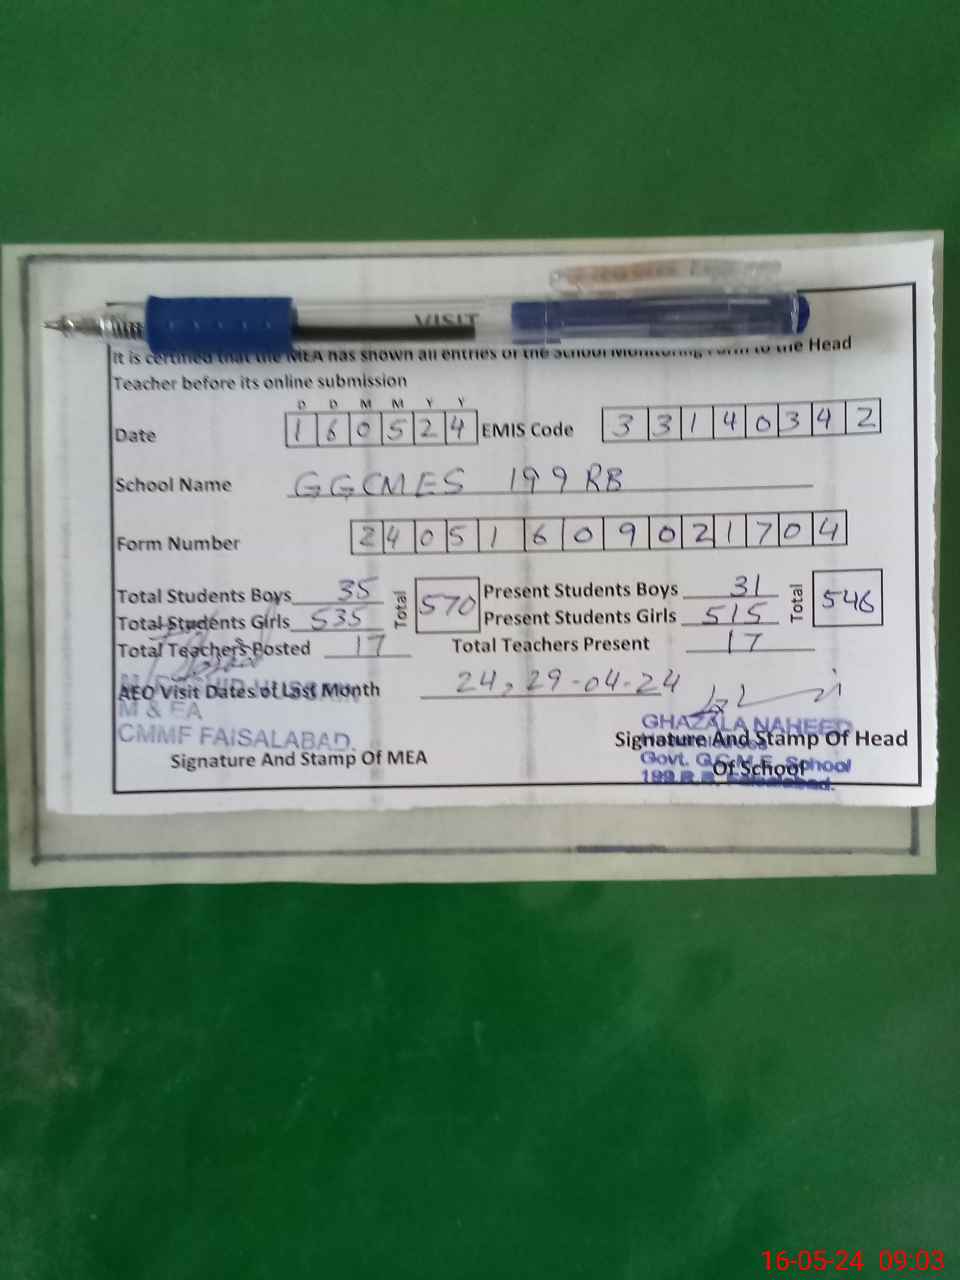 VISIT
It is certified that the MEA has shown all entries of the School Monitoring Form to the Head
Teacher before its online submission
D D M M Y Y
Date 1 6 0 5 2 4 EMIS Code 3 3 1 4 0 3 4 2
School Name GGCMES 199 RB
Form Number 2 4 0 5 1 6 0 9 0 2 1 7 0 4
Total Students Boys 35 Total 570 Present Students Boys 31 Total 546
Total Students Girls 535 Present Students Girls 515
Total Teachers Posted 17 Total Teachers Present 17
AEO Visit Dates of Last Month 24, 29-04-24
M & EA
CMMF FAISALABAD.
Signature And Stamp Of MEA
GHAZALA NAHEED
Signature And Stamp Of Head
Govt. G.C.M.E. School
Of School
199 R.B. Faisalabad.
16-05-24 09:03